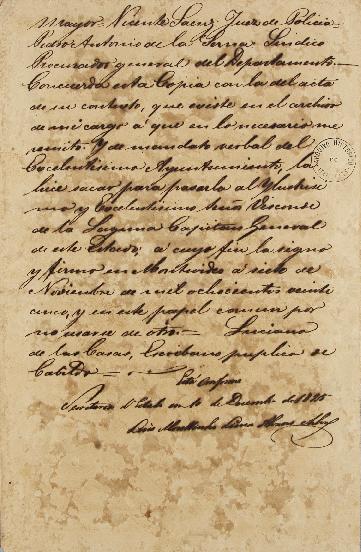 Mayor- Vicente Saenz Juez de Policia
Pedro Antonio de la Serna Sindico
Procurador general del Departamento-
Concuerda esta Copia con la del acta
de su contesto, que existe en el archivo
de mi cargo á que en lo necesario me
remito. Y de mandato verbal del
Excelentisimo Ayuntamiento, la
hice sacar para pasarla al Ylustrisi
mo y Excelentisimo Señor Visconde
de la Laguna Capitan General
de este Estado; á cuyo fin la signo
y firmo en Montevideo a siete de
Noviembre de mil ochocientos veinte
cinco, y en este papel comun por
no usarse de otro- Luciano
de las Casas, Escribano publico de
Cabildo
Está Conforme
Secretaria d'Estado em 10 de Dezembro de 1825
Luis